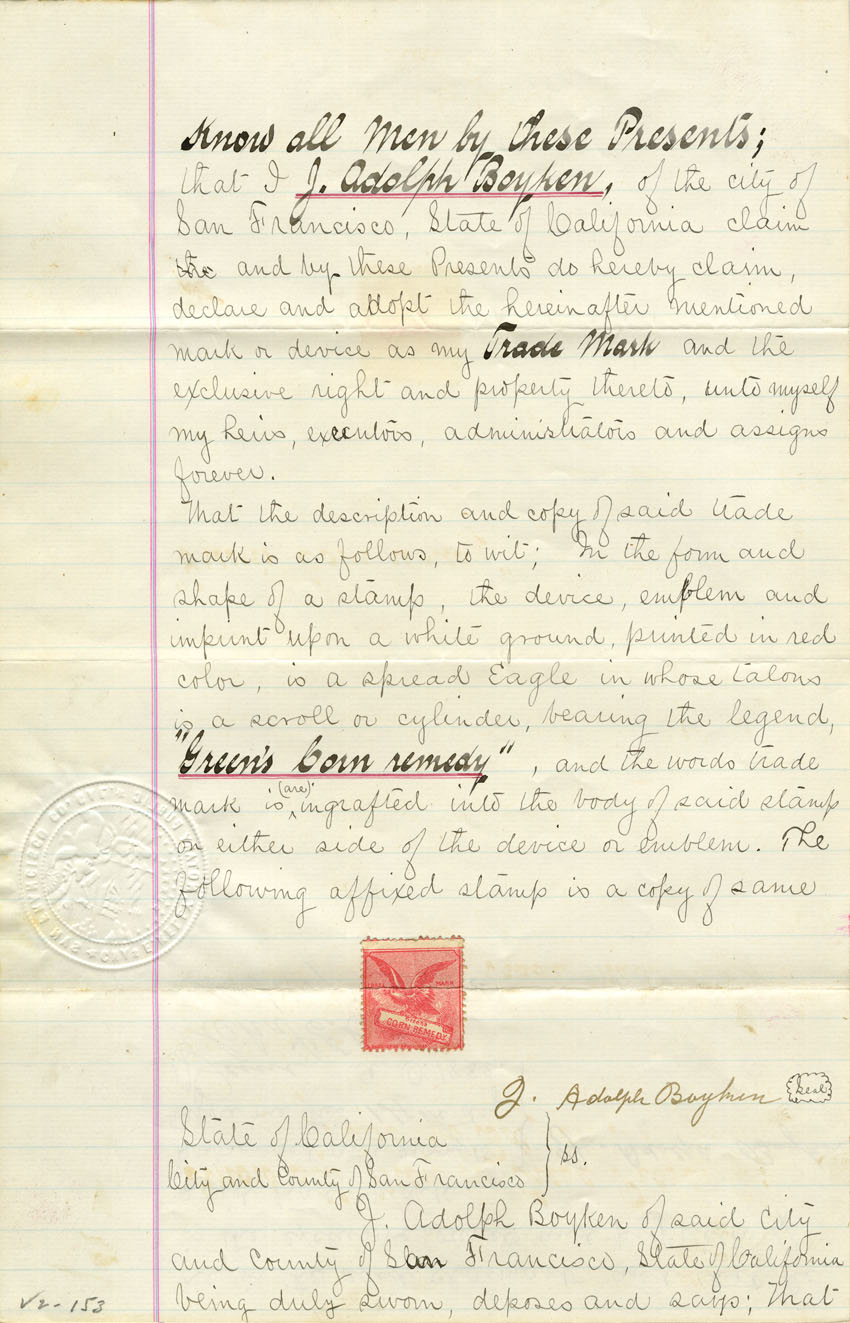 Know all Men by these Presents;
that I J. Adolph Boyken, of the city of
San Francisco, State of California claim
and by these Presents do hereby claim,
declare and adopt the hereinafter mentioned
mark or device as my Trade Mark and the
exclusive right and property thereto, unto myself
my heirs, executors, administrators and assigns
forever.
That the description and copy of said trade
mark is as follows, to wit; In the form and
shape of a stamp, the device, emblem and
imprint upon a white ground, printed in red
color, is a spread Eagle in whose talons
is a scroll or cylinder, bearing the legend,
"Green's Corn remedy", and the words trade
mark is (are) ingrafted into the body of said stamp
on either side of the device or emblem. The
following affixed stamp is a copy of same
TRADE MARK
GREEN'S
CORN REMEDY
J. Adolph Boyken seal
State of California
City and County of San Francisco } ss.
J. Adolph Boyken of said city
and county of San Francisco, State of California
being duly sworn, deposes and says; That
V2-153